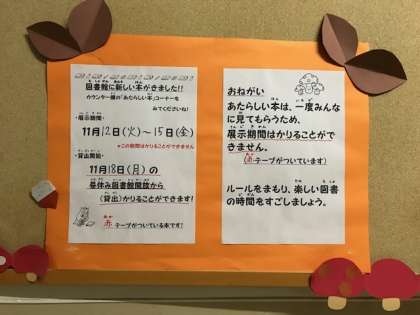 図書館に新しい本がきました!!
カウンター横の「あたらしい本」コーナーを
みてくださいね!
・展示期間・
11月12日(火)~15日(金)
*この期間はかりることができません
・貸出開始・
11月18日(月)の
昼休み図書館開館から
(貸出)かりることができます!
赤テープがついている本です!
おねがい
あたらしい本は、一度みんな
に見てもらうため、
展示期間はかりることがで
きません。
(赤テープがついています)
ルールをまもり、楽しい図書
の時間をすごしましょう。